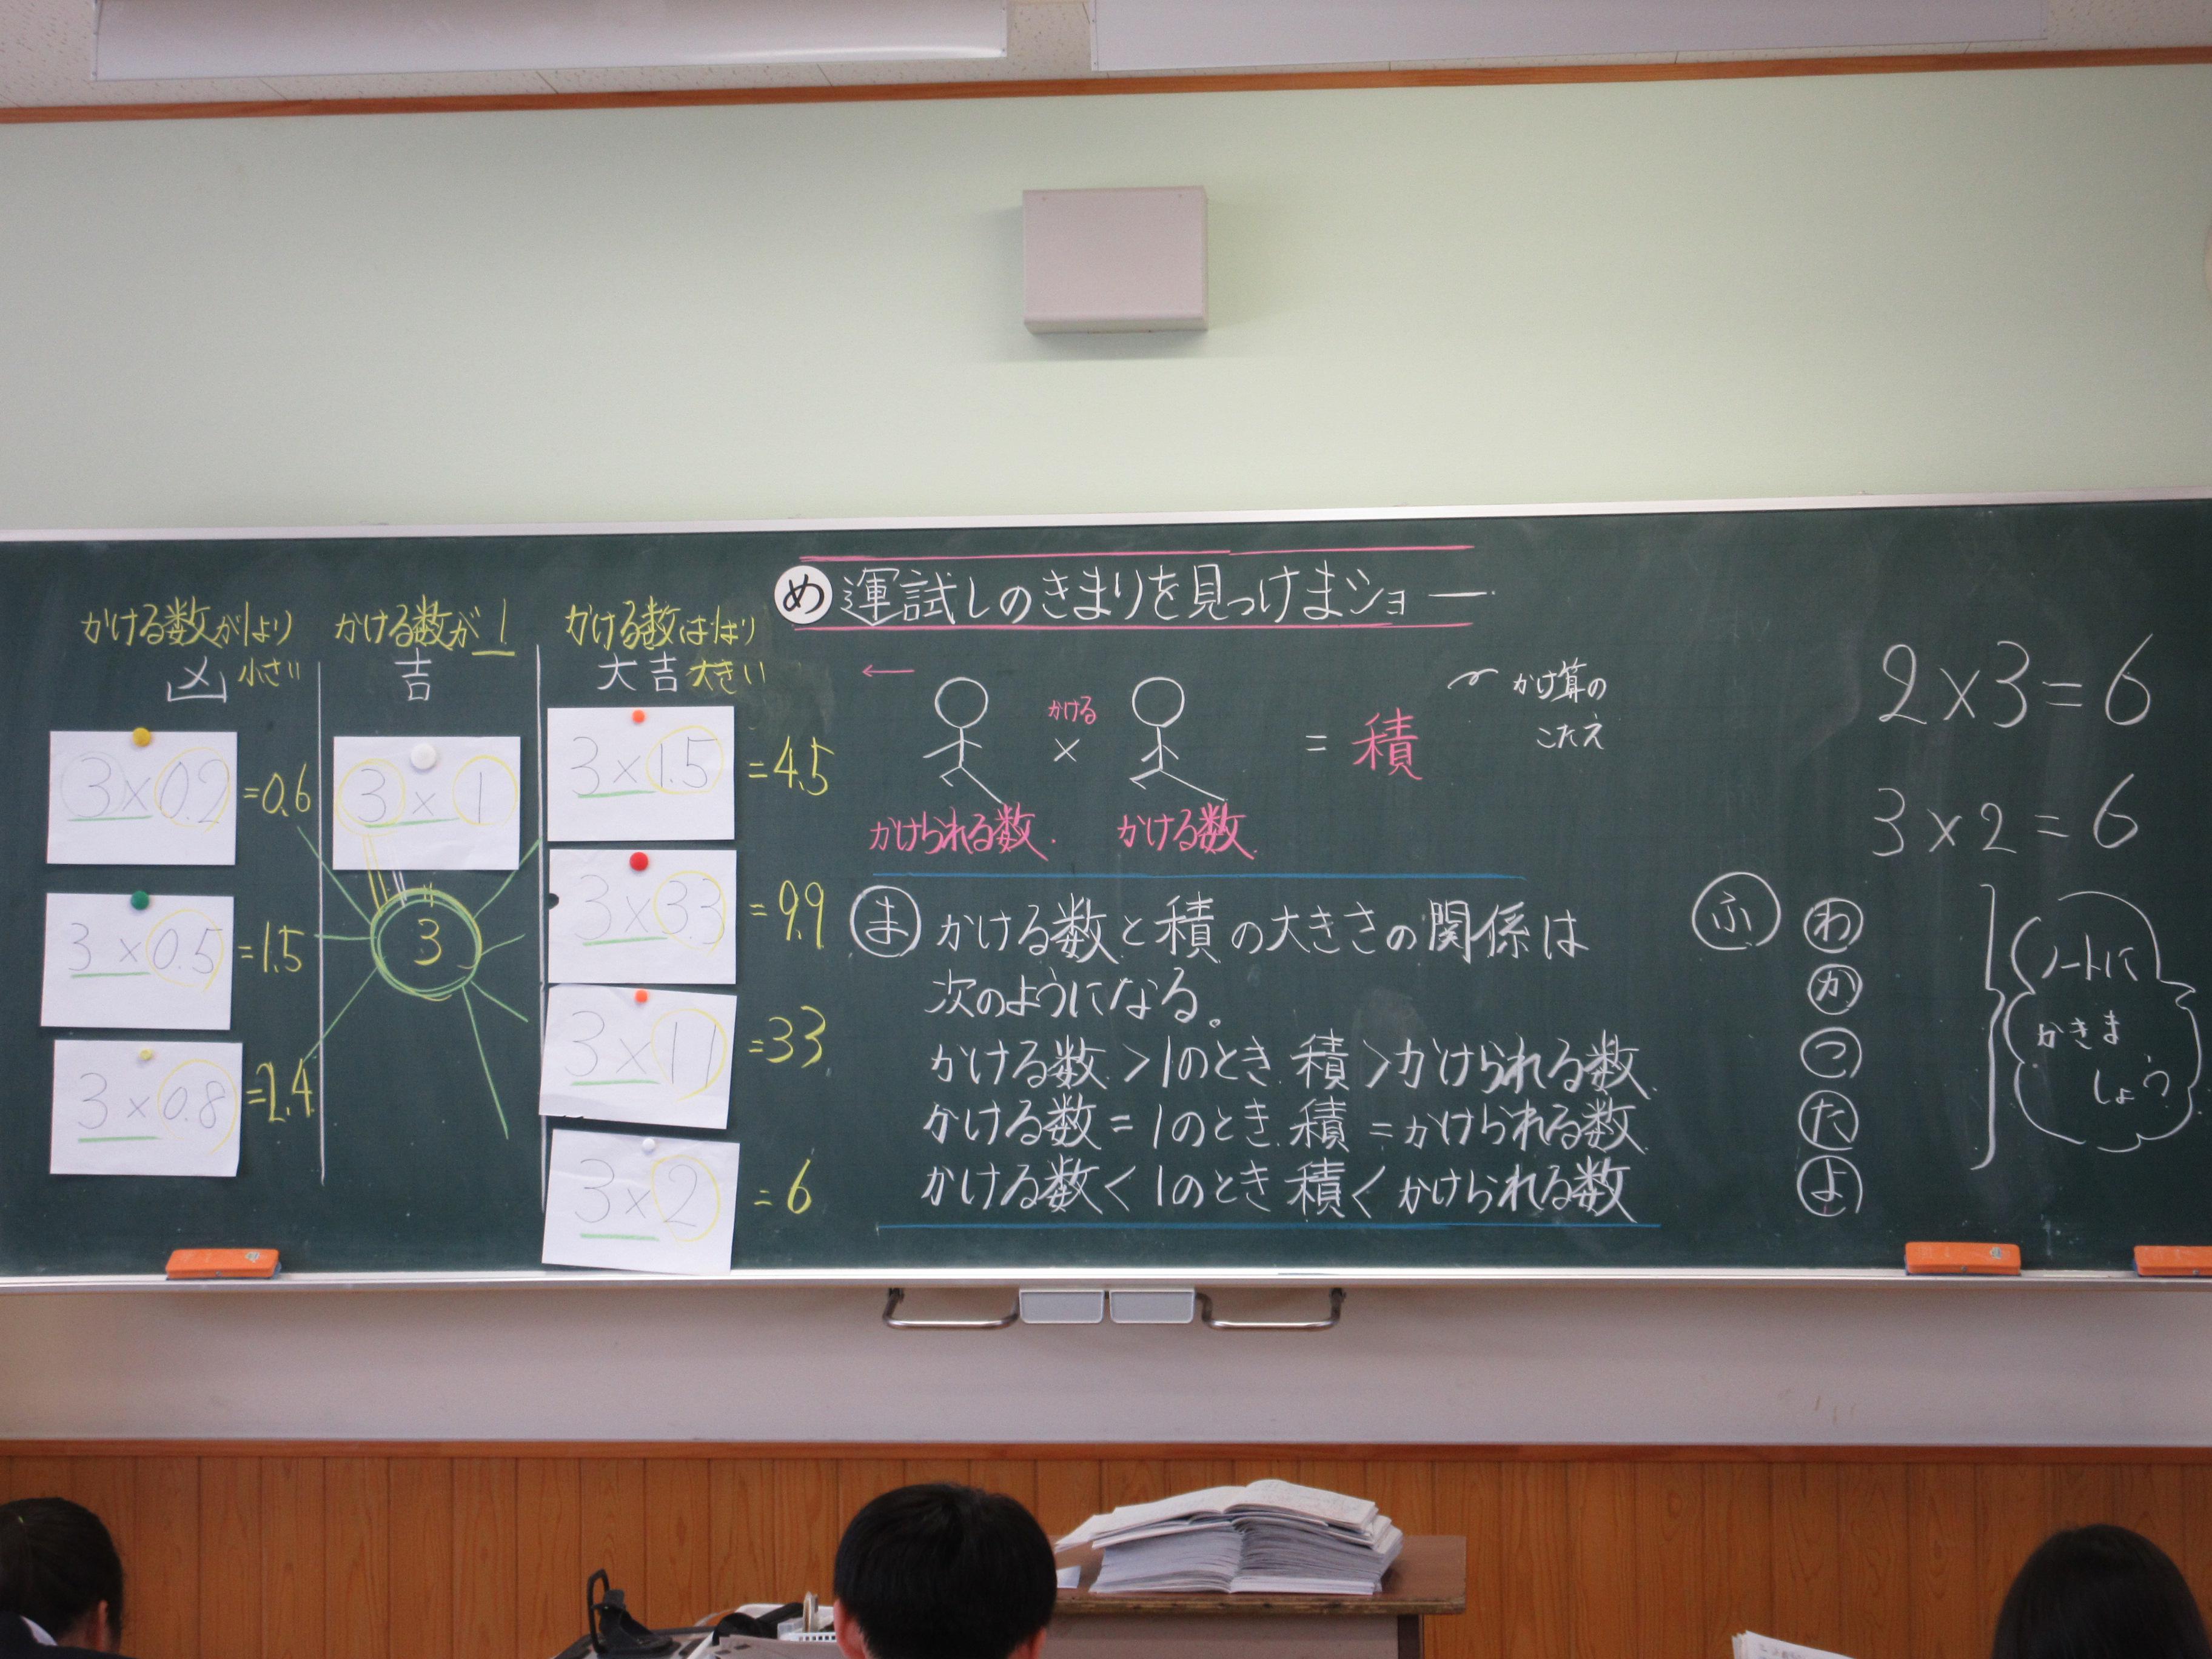 め 運試しのきまりを見っけまショー
かける数が1より
小さい
凶
3×0.2=0.6
3×0.5=1.5
3×0.8=2.4
かける数が1
吉
3×1
3
かける数は1より
大きい
大吉
3×1.5=4.5
3×3.3=9.9
3×11=33
3×2=6
かける
× = 積
かけ算の
こたえ
かけられる数 かける数
ま かける数と積の大きさの関係は
次のようになる。
かける数>1のとき 積>かけられる数
かける数=1のとき 積=かけられる数
かける数<1のとき 積<かけられる数
2×3=6
3×2=6
ふ わ
か
た
よ
ノートに
かきま
しょう